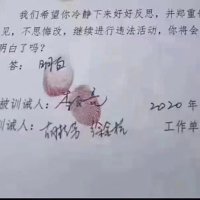 我们希望你冷静下来好好反思，并郑重
见，不思悔改，继续进行违法活动，你将会
明白了吗？
答：明白
被训诫人：李文亮
训诫人：
2020年
工作单